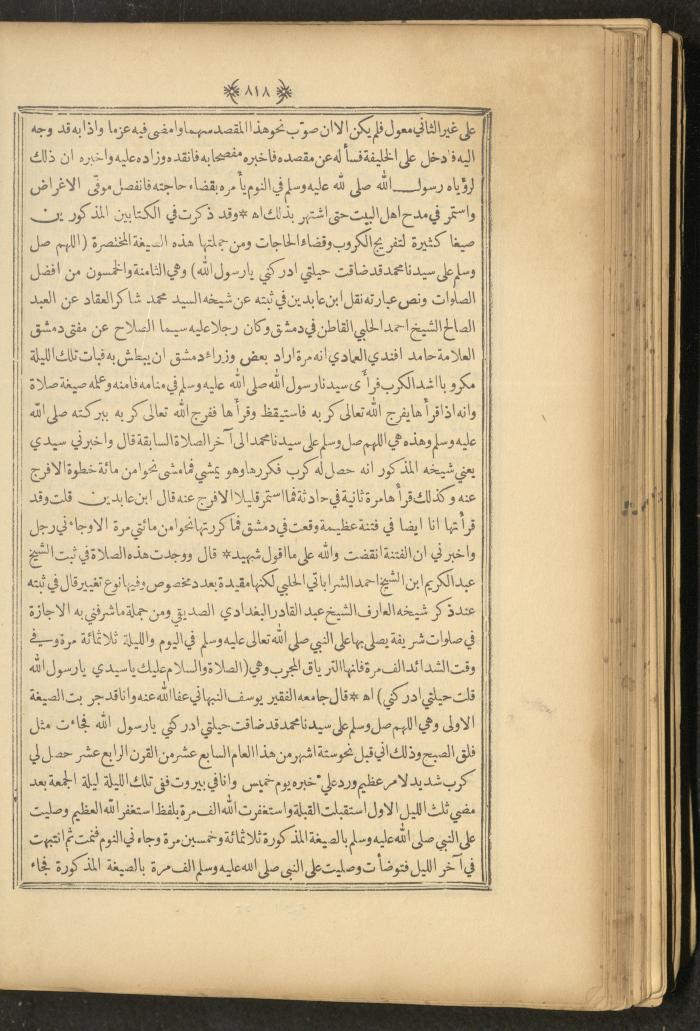 ﴿٨١٨﴾
على غير الثاني معول فلم يكن الا ان صوّب نحو هذا المقصد سهما وامضى فيه عزما واذا به قد وجه
اليه فدخل على الخليفة فسأله عن مقصده فاخبره مفصحا به فانقده وزاده عليه واخبره ان ذلك
لرؤياه رسول الله صلى لله عليه وسلم في النوم يأمره بقضاء حاجته فانفصل موفّى الاغراض
واستمر في مدح اهل البيت حتى اشتهر بذلك اه *وقد ذكرت في الكتابين المذكورين
صيغا كثيرة لتفريج الكروب وقضاء الحاجات ومن جملتها هذه الصيغة المختصرة (اللهم صل
وسلم على سيدنا محمد قد ضاقت حيلتي ادركني يارسول الله) وهي الثامنة والخمسون من افضل
الصلوات ونص عبارته نقل ابن عابدين في ثبته عن شيخه السيد محمد شاكر العقاد عن العبد
الصالح الشيخ احمد الحلبي القاطن في دمشق وكان رجلا عليه سيما الصلاح عن مفتي دمشق
العلامة حامد افندي العمادي انه مرة اراد بعض وزراء دمشق ان يبطش به فبات تلك الليلة
مكروبا اشد الكرب فرأى سيدنا رسول الله صلى الله عليه وسلم في منامه فامنه وعلمه صيغة صلاة
وانه اذا قرأها يفرج الله تعالى كربه فاستيقظ وقرأها ففرج الله تعالى كربه ببركته صلى الله
عليه وسلم وهذه هي اللهم صل وسلم على سيدنا محمد الى آخر الصلاة السابقة قال واخبرني سيدي
يعني شيخه المذكور انه حصل له كرب فكررها وهو يمشي فما مشى نحوا من مائة خطوة الا فرج
عنه وكذلك قرأها مرة ثانية في حادثة فما استمر قليلا الا فرج عنه قال ابن عابدين قلت وقد
قرأتها انا ايضا في فتنة عظيمة وقعت في دمشق فما كررتها نحوا من مائتي مرة الا وجاءني رجل
واخبرني ان الفتنة انقضت والله على ما اقول شهيد* قال ووجدت هذه الصلاة في ثبت الشيخ
عبد الكريم ابن الشيخ احمد الشراباتي الحلبي لكنها مقيدة بعدد مخصوص وفيها نوع تغيير قال في ثبته
عند ذكر شيخه العارف الشيخ عبد القادر البغدادي الصديقي ومن جملة ما شرفني به الاجازة
في صلوات شريفة يصلى بها على النبي صلى الله تعالى عليه وسلم في اليوم والليلة ثلاثمائة مرة وفي
وقت الشدائد الف مرة فانها الترياق المجرب وهي (الصلاة والسلام عليك يا سيدي يارسول الله
قلت حيلتي ادركني) اه *قال جامعه الفقير يوسف النبهاني عفا الله عنه وانا قد جربت الصيغة
الاولى وهي اللهم صل وسلم على سيدنا محمد قد ضاقت حيلتي ادركني يارسول الله فجاءت مثل
فلق الصبح وذلك اني قبل نحو ستة اشهر من هذا العام السابع عشر من القرن الرابع عشر حصل لي
كرب شديد لامر عظيم ورد عليّ خبره يوم خميس وانا في بيروت ففي تلك الليلة ليلة الجمعة بعد
مضي ثلث الليل الاول استقبلت القبلة واستغفرت الله الف مرة بلفظ استغفر الله العظيم وصليت
على النبي صلى الله عليه وسلم بالصيغة المذكورة ثلاثمائة وخمسين مرة وجاءني النوم فنمت ثم انتبهت
في آخر الليل فتوضأت وصليت على النبي صلى الله عليه وسلم الف مرة بالصيغة المذكورة فجاء